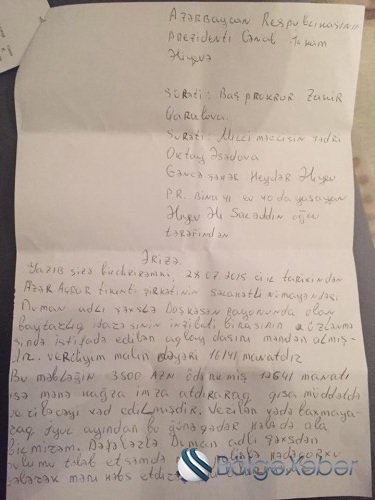 Azərbaycan Respublikasının
prezidenti Cənab İlham
Əliyevə
Surəti: Baş prokrur Zakir
Qaralova.
Surəti: Milli məclisin sədri
Oktay Əsədova
Gəncə şəhər Heydər Əliyev
P.R. Bina 41 ev yaşayan
Əliyev Əli oğlu
tərəfindən
Ərizə.
Yazıb sizə bildirirəmki, 28.07.2015 ci il tarixindən
AzərAqrar tikinti şirkətinin səlahətli nümayəndəsi
Duman adlı şəxslə Daşkəsən rayonunda olan
Baytarlıq idarəsinin inzibati binasının üzlənmə
sində istifadə edilən aqlay daşını məndən almış-
dır. verdiyim malın dəyəri 16141 manatdız
Bu məbləğin 3500 AZN ödənmiş 12641 manatı
isə mənə kağza imza atdıraraq qısa müddətdə
veriləcəyi vəd edilmişdir. Verilən vədə baxmaya-
raq iyul ayından bu günə qədər hələdə ala
bilmirəm. Dəfələrlə Duman adlı şəxsdən
pulumu tələb etsəmdə
məni həbs
BölgəXəbər